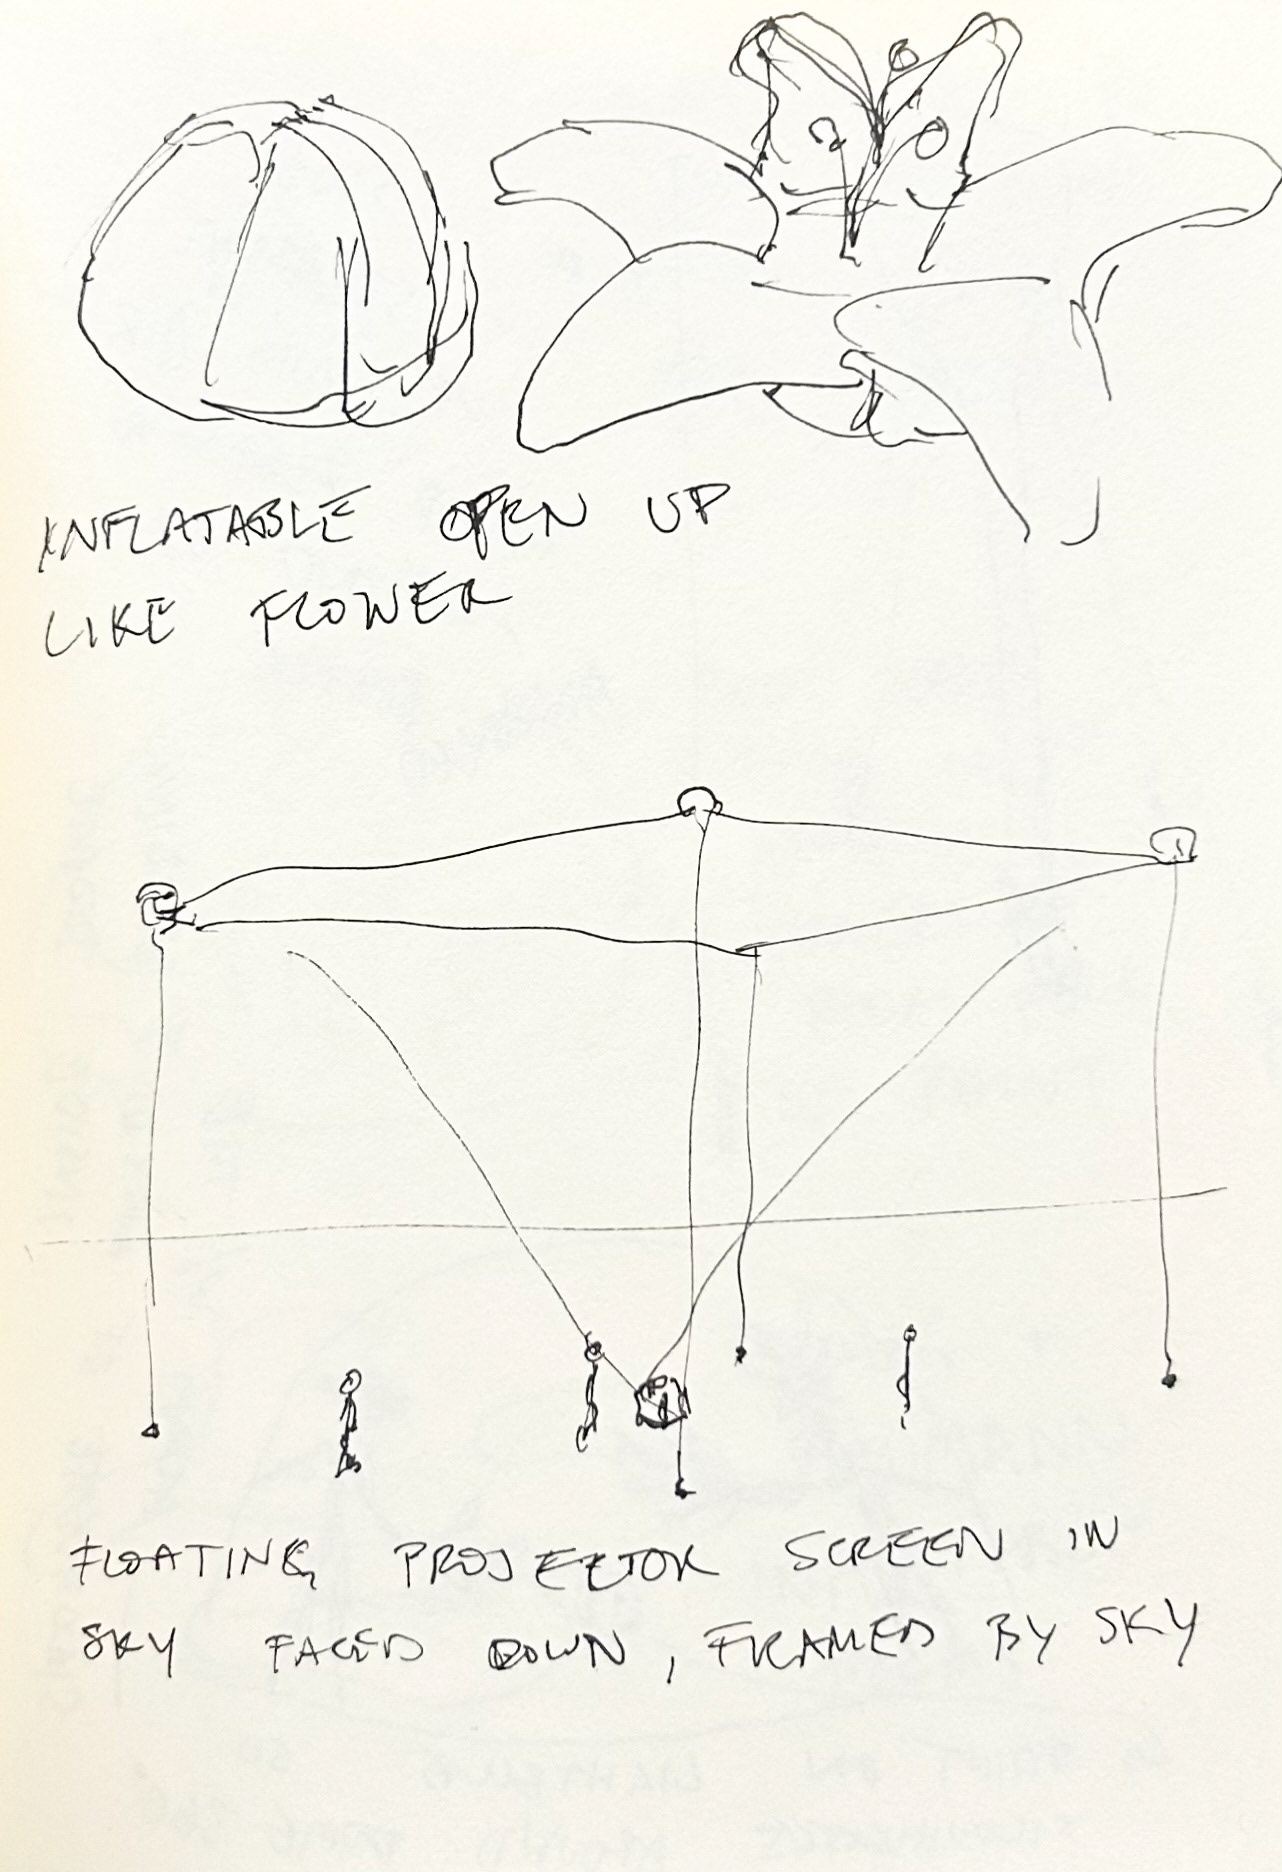 INFLATABLE OPEN UP
LIKE FLOWER
FLOATING PROJECTOR SCREEN IN
SKY FACED DOWN, FRAMED BY SKY